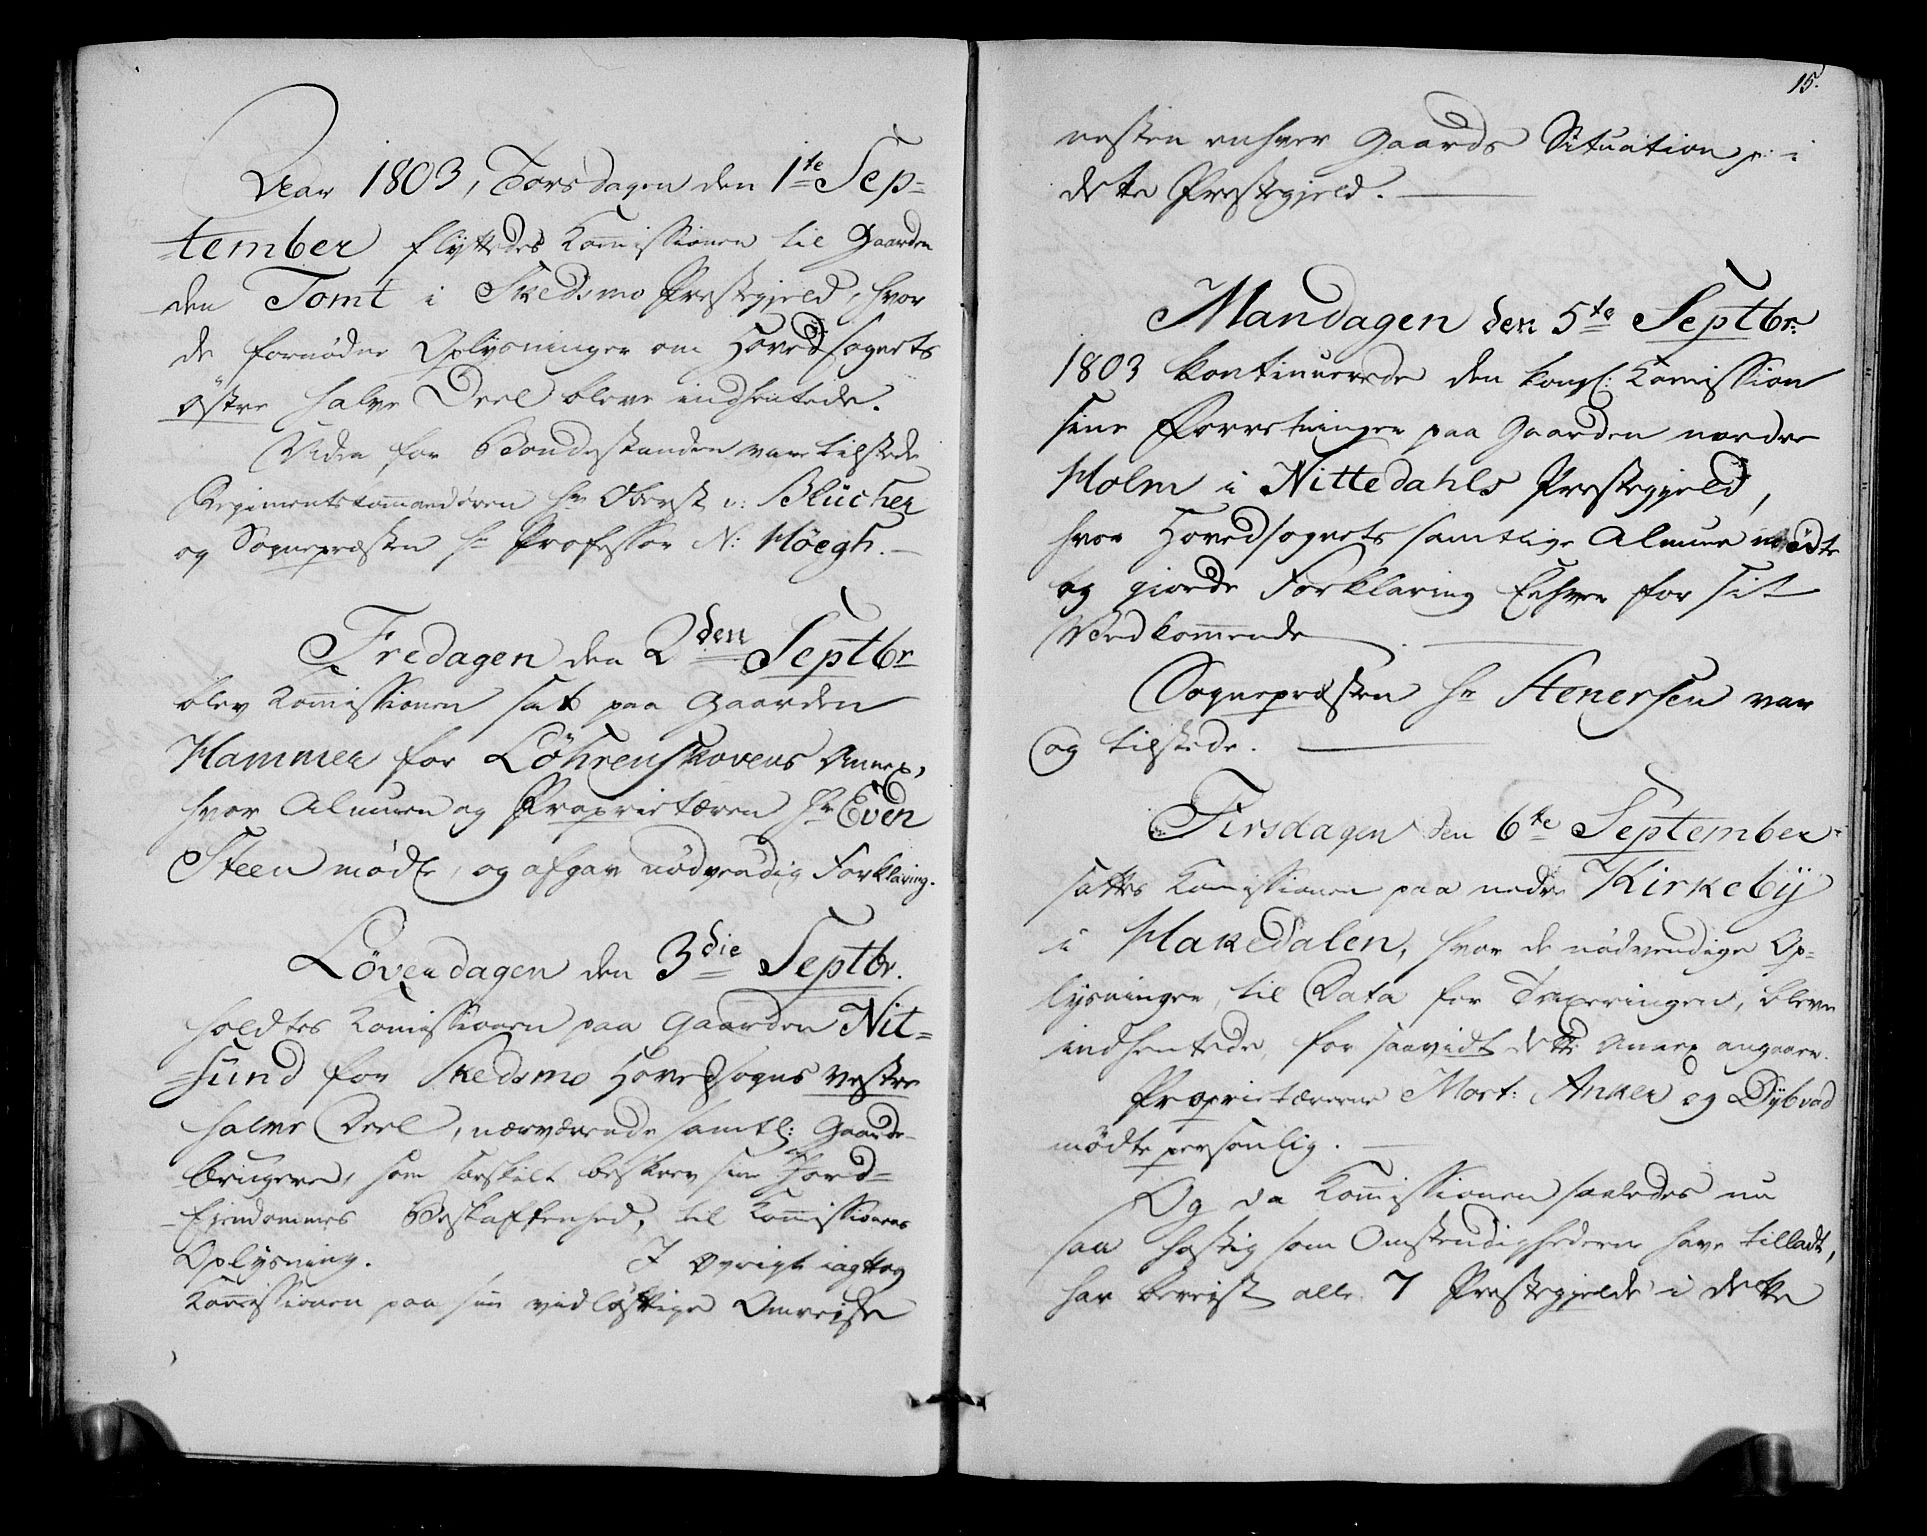 Aar 1803, Torsdagen den 1te Sep=
=tember flyttedes Kom̄issionen til Gaarden
den Tomt i Skedsmo Præstegjeld, hvor
de fornødne Oplysninger om Hovedsognets
østre halve Deel bleve indhentede.
Uden for Bondestanden vare tilstede
Regimentskom̄andøren Hr Oberst v: Blücher
og Sognepræsten Hr Professor N: Høegh. —
Fredagen den 2den Septbr
blev Kom̄issionen sat paa Gaarden
Hammer for Löhrenskovens Annex,
hvor Almuen og Proprietæren Hr Even
Steen mødte, og afgav nødvendig Forklaring.
Løverdagen den 3die Septbr.
holdtes Kom̄issionen paa Gaarden Nit=
=sund for Skedsmo Hovedsogns vestre
halve Deel, nærværende samtl: Gaard-
brugere, som særskilt beskrev sine Jord=
=Ejendommes Beskaffenhed, til Kom̄issionens
Oplysning. I øvrigt iagttog
Kom̄issionen paa sin vidløftige Omrejse
15.
næsten enhver Gaards Situation i
dette Præstegjeld. —
Mandagen den 5te Septbr:
1803 kontinuerede den kongl: Kom̄ission
sine Forretninger paa Gaarden nordre
Holm i Nittedahls Præstegjeld,
hvor Hovedsognets samtlige Almue mødte
og giorde Forklaring Enhver for sit
Vedkom̄ende. —
Sognepræsten Hr Stenersen var
og tilstede. —
Tirsdagen den 6te September
sattes Kom̄issionen paa nedre Kirkebÿ
i Hakedalen, hvor de nødvendige Op=
lysninger, til Data for Taxeringen, bleve
indhentede, for saavidt dette Annex angaaer.
Proprietærerne Mort: Anker og Dybvad
mödte personlig. —
Og da Kom̄issionen saaledes nu
saa hastig som Omstændighederne have tilladt,
har bereist alle 7 Præstegjelde i dette